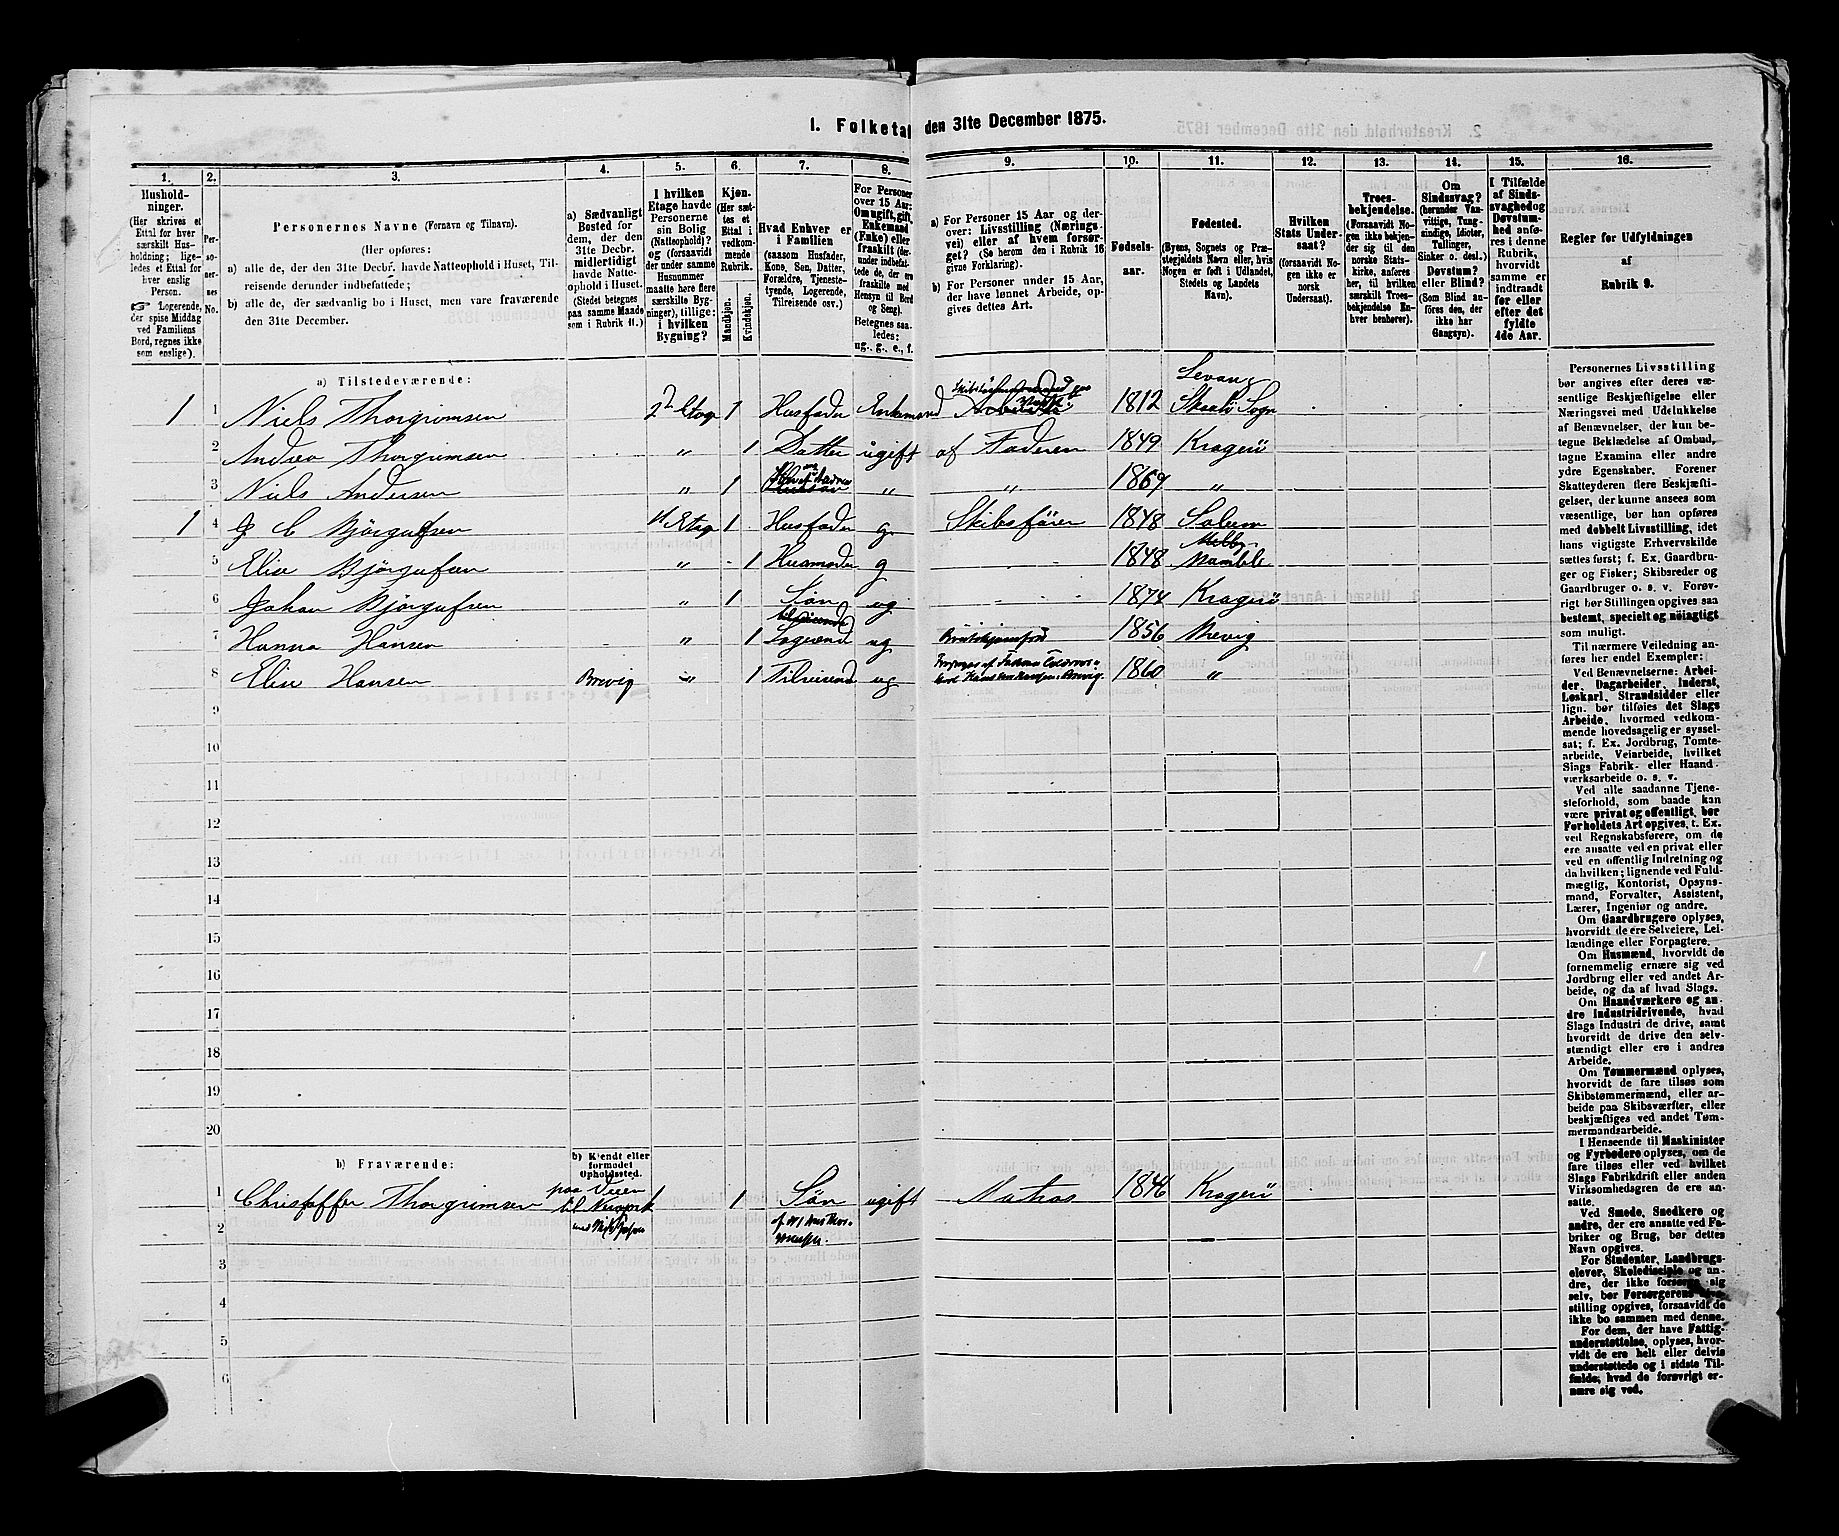 1. Folketal den 31te December 1875.
1. 2. 3. 4. 5. 6. 7. 8. 9. 10. 11. 12. 13. 14. 15. 16.
Hushold-
ninger.
(Her skrives et
Ettal for hver
særskilt Hus-
holdning; lige-
ledes et Ettal for
hver enslig
Person.
☞ Logerende,
der spise Middag
ved Familiens
Bord, regnes ikke
som enslige).
Per-
so-
ner-
nes
No.
Personernes Navne (Fornavn og Tilnavn).
(Her opføres:
a) alle de, der den 31te Decbr. havde Natteophold i Huset, Til-
reisende derunder indbefattede;
b) alle de, der sædvanlig bo i Huset, men vare fraværende
den 31te December.
a) Sædvanligt
Bosted for
dem, der den
31te Decbr.
midlertidigt
havde Natte-
ophold i Huset.
(Stedet betegnes
paa samme Maade
som i Rubrik 11.)
I hvilken
Etage havde
Personerne
sin Bolig
(Natteophold)?
og (forsaavidt
der under samme
Husnummer
maatte høre flere
særskilte Byg-
ninger), tillige:
i hvilken
Bygning?
Kjøn.
(Her sæt-
tes et
Ettal i
vedkom-
mende
Rubrik.
Mandkjøn.
Kvindekjøn.
Hvad Enhver er
i Familien
(saasom Husfader,
Kone, Søn, Datter,
Forældre, Tjeneste-
tyende, Logerende,
Tilreisende osv.)
For Personer
over 15 Aar:
Om ugift, gift,
Enkemand
(Enke) eller
fraskilt (der-
under indbefat-
tede de, der ere
fraskilte med
Hensyn til Bord
og Seng).
Betegnes saa-
ledes:
ug., g., e., f.
a) For Personer 15 Aar og der-
over: Livsstilling (Nærings-
vei) eller af hvem forsør-
get? (Se herom den i Rubrik 16
givne Forklaring).
b) For Personer under 15 Aar,
der have lønnet Arbeide, op-
gives dettes Art.
Fødsels-
aar.
Fødested.
(Byens, Sognets og Præ-
stegjeldets Navn eller, hvis
Nogen er født i Udlandet,
Stedets og Landets
Navn).
Hvilken
Stats Under-
saat?
(forsaavidt No-
gen ikke er
norsk
Undersaat).
Troes-
bekjendelse.
(Forsaavidt No-
gen ikke bekjen-
der sig til den
norske Stats-
kirke, anføres
her, til hvilken
særskilt Troes-
bekjendelse En-
hver henhører).
Om
Sindssvag?
(herunder Van-
vittige, Tung-
sindige, Idioter,
Tullinger,
Sinker o. desl.)
Døvstum?
eller Blind?
(Som Blind an-
føres den, der
ikke har
Gangsyn).
I Tilfælde
af Sinds-
svaghed og
Døvstum-
hed anfø-
res i denne
Rubrik,
hvorvidt
samme er
indtraadt
før eller
efter det
fyldte
4de Aar.
Regler for Udfyldningen
af
Rubrik 9.
a) Tilstedeværende:
Levang
1 1 Niels Thorgrimsen 2den Etag 1 Husfader Enkemand 1812 Skaatø Sogn
2 Andrea Thorgrimsen " 1 Datter ugift af Faderen 1849 Kragerø
3 Niels Andersen " 1 " " 1869 "
1 4 G C Bjørgufsen 1 Etag 1 Husfader g Skibsfører 1848 Solum
5 Elise Bjørgufsen " 1 Husmoder g 1848 Bamble
6 Johan Bjørgufsen " 1 Søn ug 1874 Kragerø
7 Hanna Hansen " 1 Logerend ug 1856 Brevig
8 Elise Hansen Brevig " 1 Tilreisend ug 1860 "
9
10
11
12
13
14
15
16
17
18
19
20
b) Fraværende:
b) Kjendt eller
formodet
Opholdssted.
1 Christoffer Thorgrimsen paa Veien til Newyork 1 Søn ugift Matros 1846 Kragerø
2
3
4
5
6
Personernes Livsstilling
bør angives efter deres væ-
sentlige Beskjæftigelse eller
Næringsvei med Udelukkelse
af Benævnelser, der kun be-
tegne Beklædelse af Ombud,
tagne Examina eller andre
ydre Egenskaber. Forener
Skatteyderen flere Beskjæfti-
gelser, der kunne ansees som
væsentlige, bør han opføres
med dobbelt Livsstilling, idet
hans vigtigste Erhvervskilde
sættes først; f. Ex. Gaardbru-
ger og Fisker; Skibsreder og
Gaardbruger o. s. v. Forøv-
rigt bør Stillingen opgives saa
bestemt, specielt og nøiagtigt
som muligt.
Til nærmere Veiledning an-
føres her endel Exempler:
Ved Benævnelserne: Arbei-
der, Dagarbeider, Inderst,
Løskarl, Strandsidder eller
lign. bør tilføies det Slags
Arbeide, hvormed vedkom-
mende hovedsagelig er syssel-
sat; f. Ex. Jordbrug, Tomte-
arbeide, Veiarbeide, hvilket
Slags Fabrik- eller Haand-
værksarbeide o. s. v.
Ved alle saadanne Tjene-
steforhold, som baade kan
være privat og offentligt, bør
Forholdets Art opgives, t. Ex.
ved Regnskabsførere, om de
ere ansatte ved en privat eller
ved en offentlig Indretning og
da hvilken; lignende ved Fuld-
mægtig, Kontorist, Opsyns-
mand, Forvalter, Assistent,
Lærer, Ingeniør og andre.
Om Gaardbrugere oplyses,
hvorvidt de ere Selveiere, Lei-
lændinge eller Forpagtere.
Om Husmænd, hvorvidt de
fornemmelig ernære sig ved
Jordbrug eller ved andet Ar-
beide, og da af hvad Slags.
Om Haandværkere og an-
dre Industridrivende, hvad
Slags Industri de drive, samt
hvorvidt de drive den selv-
stændigt eller ere i andres
Arbeide.
Om Tømmermænd oplyses,
hvorvidt de fare tilsøs som
Skibstømmermænd, eller ar-
beide paa Skibsværfter, eller
beskjæftiges ved andet Tøm-
mermandsarbeide.
I Henseende til Maskinister
og Fyrbødere oplyses, om de
fare tilsøs eller ved hvilket
Slags Fabrikdrift eller anden
Virksomhedsgren de ere an-
satte.
Ved Smede, Snedkere og
andre, der ere ansatte ved Fa-
briker og Brug, bør dettes
Navn opgives.
For Studenter, Landbrugs-
elever, Skoledisciple og an-
dre, der ikke forsørge sig
selv, bør Forsørgerens Livs-
stilling opgives, forsaavidt de
ikke bo sammen med denne.
For dem, der have Fattig-
understøttelse, oplyses, hvor-
vidt de ere helt eller delvis
understøttede og i sidste Til-
fælde, hvad de forøvrigt er-
nære sig ved.